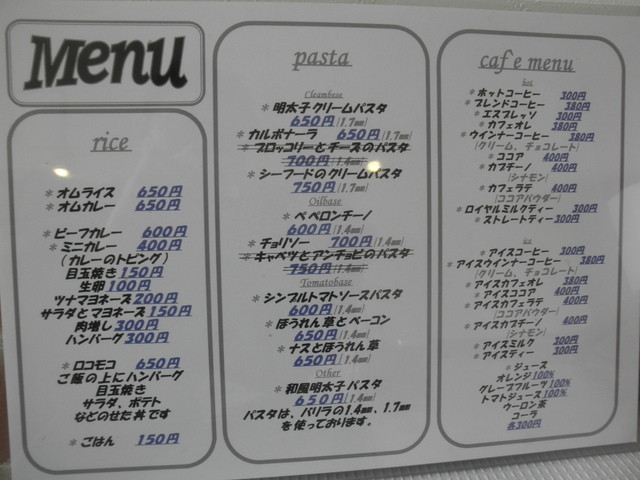 Menu
rice
＊オムライス 650円
＊オムカレー 650円
＊ビーフカレー 600円
＊ミニカレー 400円
(カレーのトッピング)
目玉焼き150円
生卵100円
ツナマヨネーズ200円
サラダとマヨネーズ150円
肉増し300円
ハンバーグ 300円
＊ロコモコ 650円
ご飯の上にハンバーグ
目玉焼き
サラダ、ポテト
などのせた丼です
＊ごはん 150円
pasta
Cleambase
＊明太子クリームパスタ
650円(1.7mm)
＊カルボナーラ 650円(1.7mm)
＊ブロッコリーとチーズのパスタ
700円(1.4mm)
＊シーフードのクリームパスタ
750円(1.7mm)
Oilbase
＊ペペロンチーノ
600円(1.4mm)
＊チョリソー 700円(1.4mm)
＊キャベツとアンチョビのパスタ
750円(1.4mm)
Tomatobase
＊シンプルトマトソースパスタ
600円(1.4mm)
＊ほうれん草とベーコン
650円(1.4mm)
＊ナスとほうれん草
650円(1.4mm)
Other
＊和風明太子パスタ
650円(1.4mm)
パスタは、バリラの1.4mm、1.7mm
を使っております。
caf'e menu
hot
＊ホットコーヒー 300円
＊ブレンドコーヒー 380円
＊エスプレッソ 300円
＊カフェオレ 380円
＊ウインナーコーヒー 380円
(クリーム、チョコレート)
＊ココア 400円
＊カプチーノ 400円
(シナモン)
＊カフェラテ 400円
(ココアパウダー)
＊ロイヤルミルクティー 300円
＊ストレートティー 300円
ice
＊アイスコーヒー 300円
＊アイスウインナーコーヒー 380円
(クリーム、チョコレート)
＊アイスカフェオレ 380円
＊アイスココア 400円
＊アイスカフェラテ 400円
(ココアパウダー)
＊アイスカプチーノ 400円
(シナモン)
＊アイスミルク 300円
＊アイスティー 300円
＊ジュース
オレンジ100%
グレープフルーツ100%
トマトジュース100%
ウーロン茶
コーラ
各300円